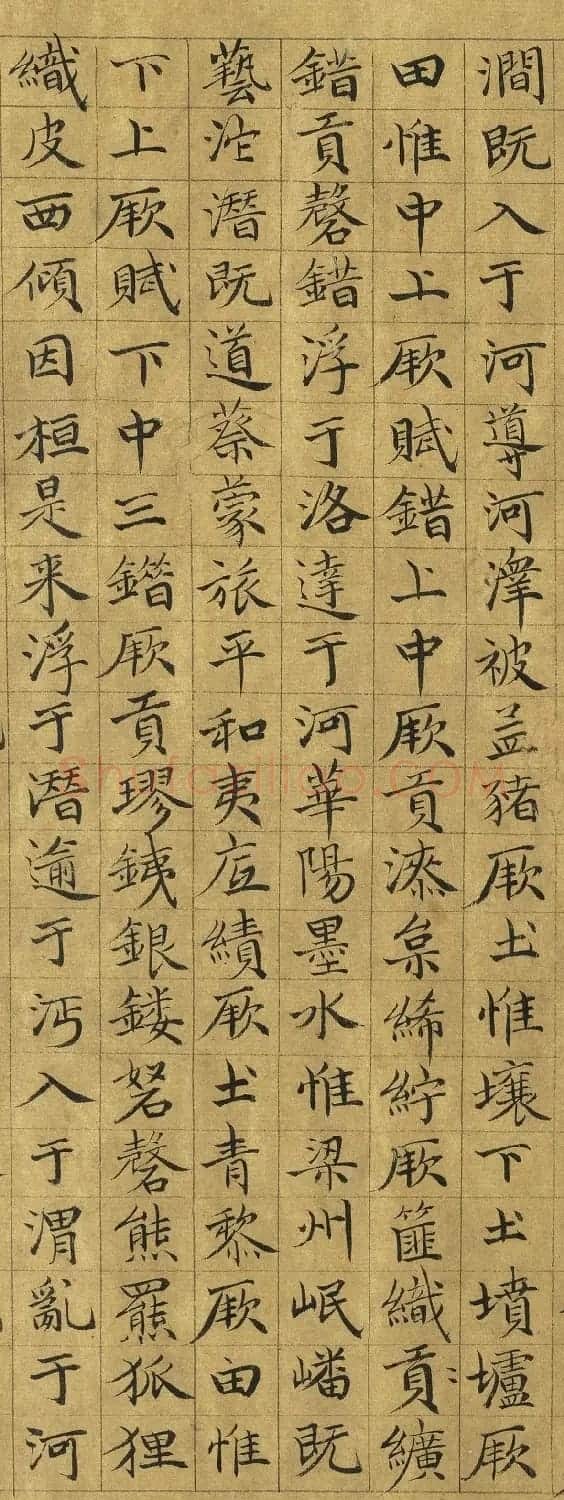 澗既入于河導河澤被孟豬厥土惟壤下土墳壚厥
田惟中上厥賦錯上中厥貢漆枲絺紵厥篚織貢纊
錯貢磬錯浮于洛達于河華陽墨水惟梁州岷嶓既
藝沱潛既道蔡蒙旅平和夷厎績厥土青黎厥田惟
下上厥賦下中三錯厥貢璆銕銀鏤砮磬熊羆狐狸
織皮西傾因桓是来浮于潛逾于沔入于渭亂于河